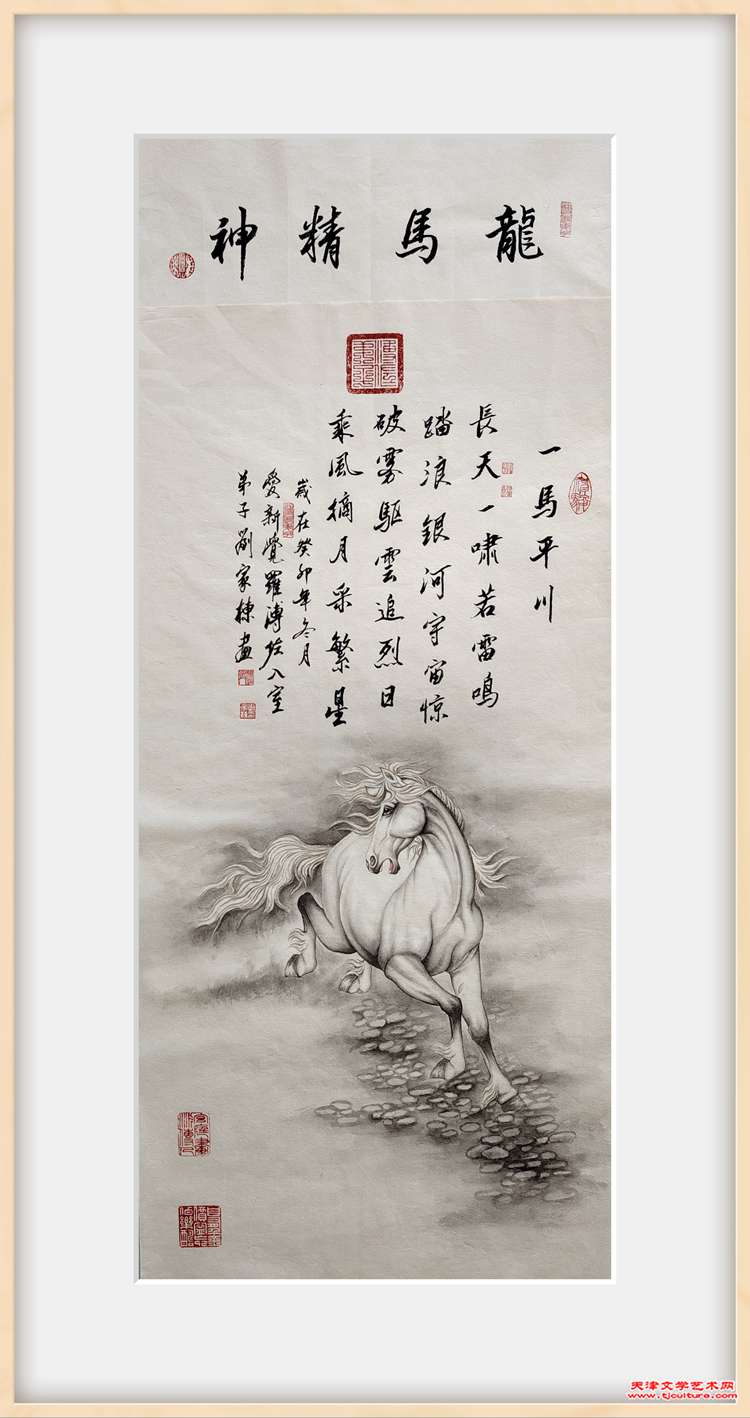 龍馬精神
一馬平川
長天一嘯若雷鳴
踏浪銀河宇宙惊
破雾驅雲追烈日
乘風摘月采繁星
歲在癸卯年冬月
愛新覺羅溥佐入室
弟子劉家棟画
天津文学艺术网
www.tjculture.com